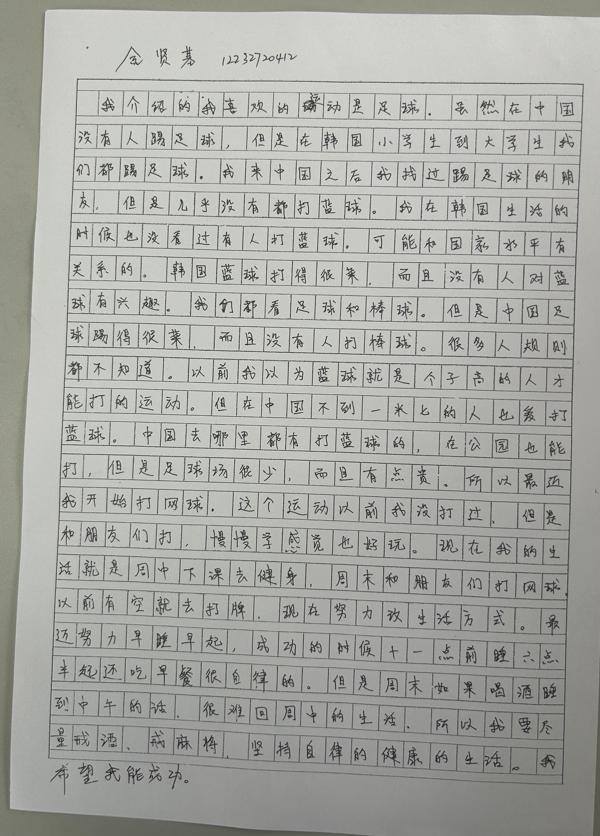 金贤基 12232720412
我介绍的我喜欢的运动是足球。虽然在中国
没有人踢足球，但是在韩国小学生到大学生我
们都踢足球。我来中国之后我找过踢足球的朋
友，但是几乎没有都打蓝球。我在韩国生活的
时候也没看过有人打蓝球。可能和国家水平有
关系的。韩国蓝球打得很菜，而且没有人对蓝
球有兴趣。我们都看足球和棒球。但是中国足
球踢得很菜，而且没有人打棒球。很多人规则
都不知道。以前我以为蓝球就是个子高的人才
能打的运动。但在中国不到一米七的人也爱打
蓝球。中国去哪里都有打蓝球的，在公园也能
打，但是足球场很少，而且有点贵。所以最近
我开始打网球。这个运动以前我没打过，但是
和朋友们打，慢慢学感觉也好玩。现在我的生
活就是周中下课去健身，周末和朋友们打网球，
以前有空就去打牌，现在努力改生活方式。最
近努力早睡早起，成功的时候十一点前睡六点
半起还吃早餐很自律的。但是周末如果喝酒睡
到中午的话，很难回周中的生活，所以我要尽
量戒酒、戒麻将，坚持自律的健康的生活。我
希望我能成功。